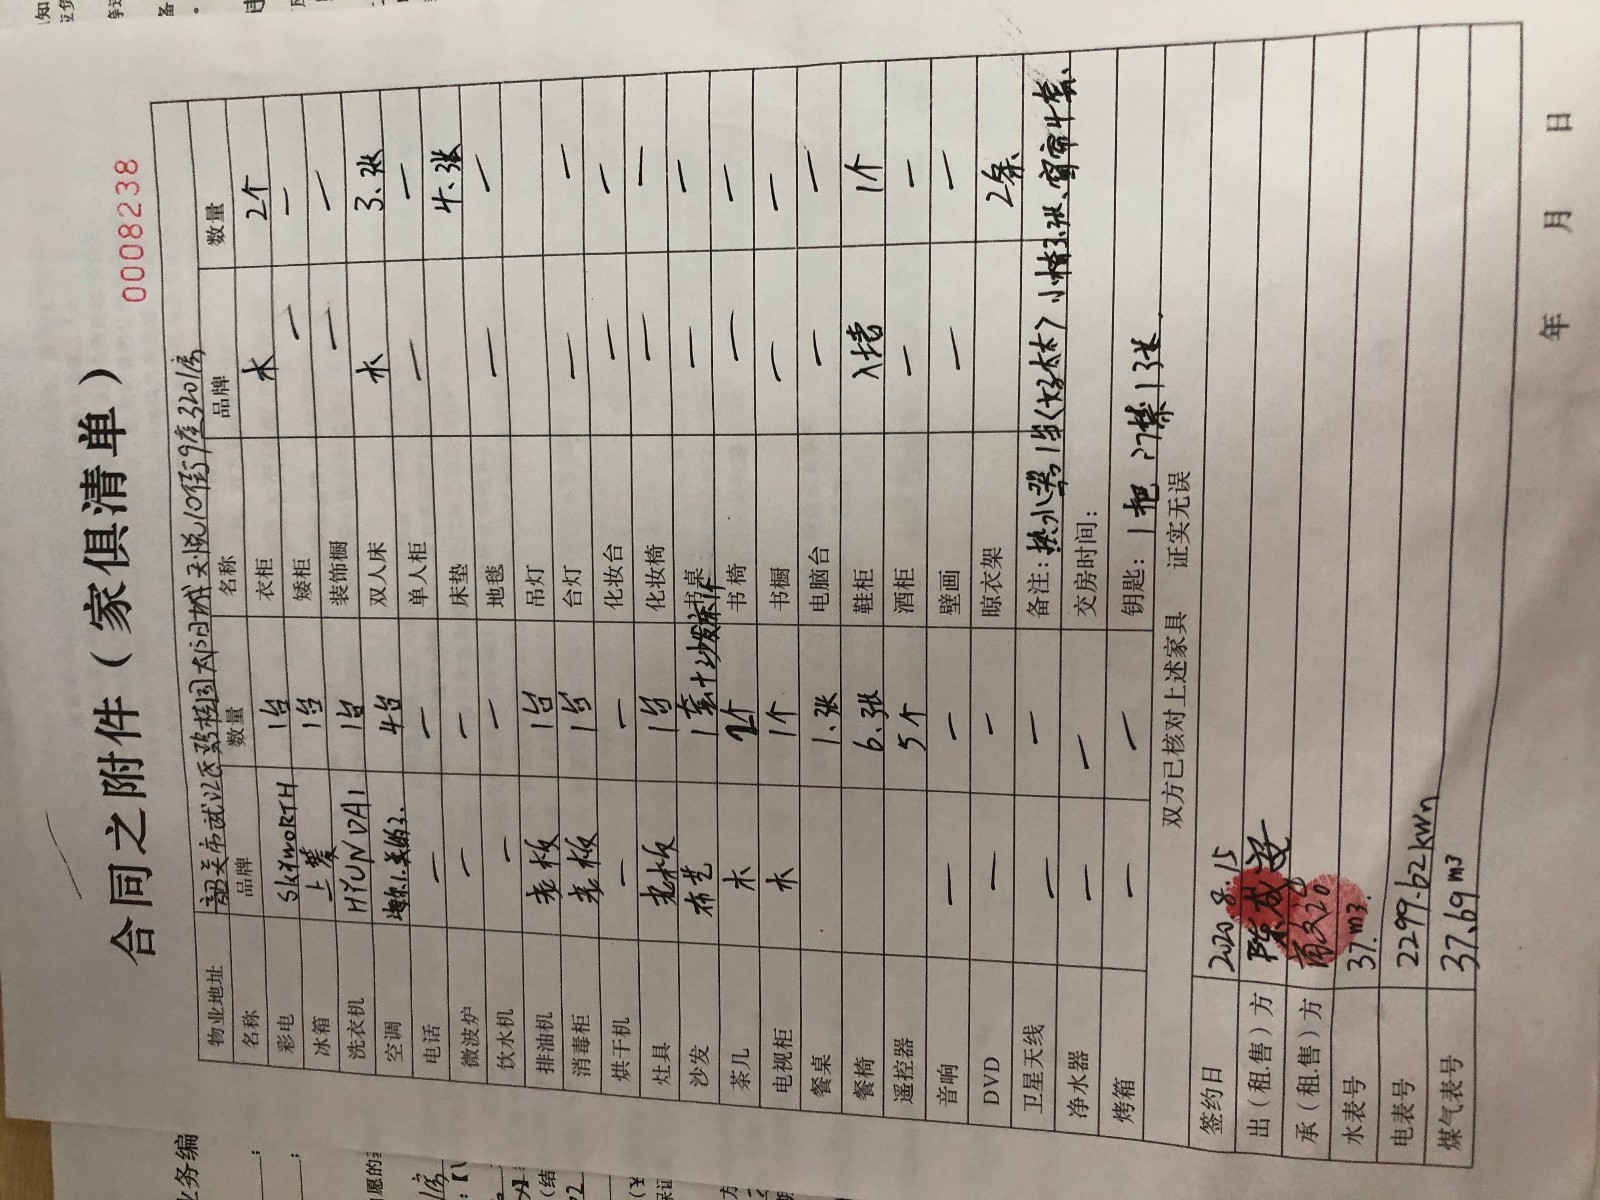 合同之附件（家俱清单）
0008238
物业地址 韶关市武江区碧桂园太阳城天悦10街9座3201房
名称 品牌 数量 名称 品牌 数量
彩电 SKYWORTH 1台 衣柜 木 2个
冰箱 上菱 1台 矮柜 — —
洗衣机 HYUNDAI 1台 装饰橱 — —
空调 4台 双人床 木 3.张
电话 — — 单人柜 — —
微波炉 — — 床垫 4.张
饮水机 — — 地毯 — —
排油机 老板 1台 吊灯
消毒柜 老板 1台 台灯 — —
烘干机 — — 化妆台 — —
灶具 老板 1台 化妆椅 — —
沙发 布艺 1套+沙发床1个 书桌 — —
茶几 木 2个 书椅 — —
电视柜 木 1个 书橱 — —
餐桌 1.张 电脑台 — —
餐椅 6.张 鞋柜 入墙 1个
遥控器 5个 酒柜 — —
音响 — — 壁画 — —
DVD — — 晾衣架 2条
卫星天线 — — 备注：热水器1台(好太太) 小椅3张、窗帘4套、
净水器 — — 交房时间：
烤箱 — — 钥匙：1把 门禁卡3张.
双方已核对上述家具 证实无误
签约日 2020.8.15
出（租.售）方 陈成
承（租.售）方
水表号 37.m3.
电表号 2299.62kwn
煤气表号 37.69m3
年 月 日